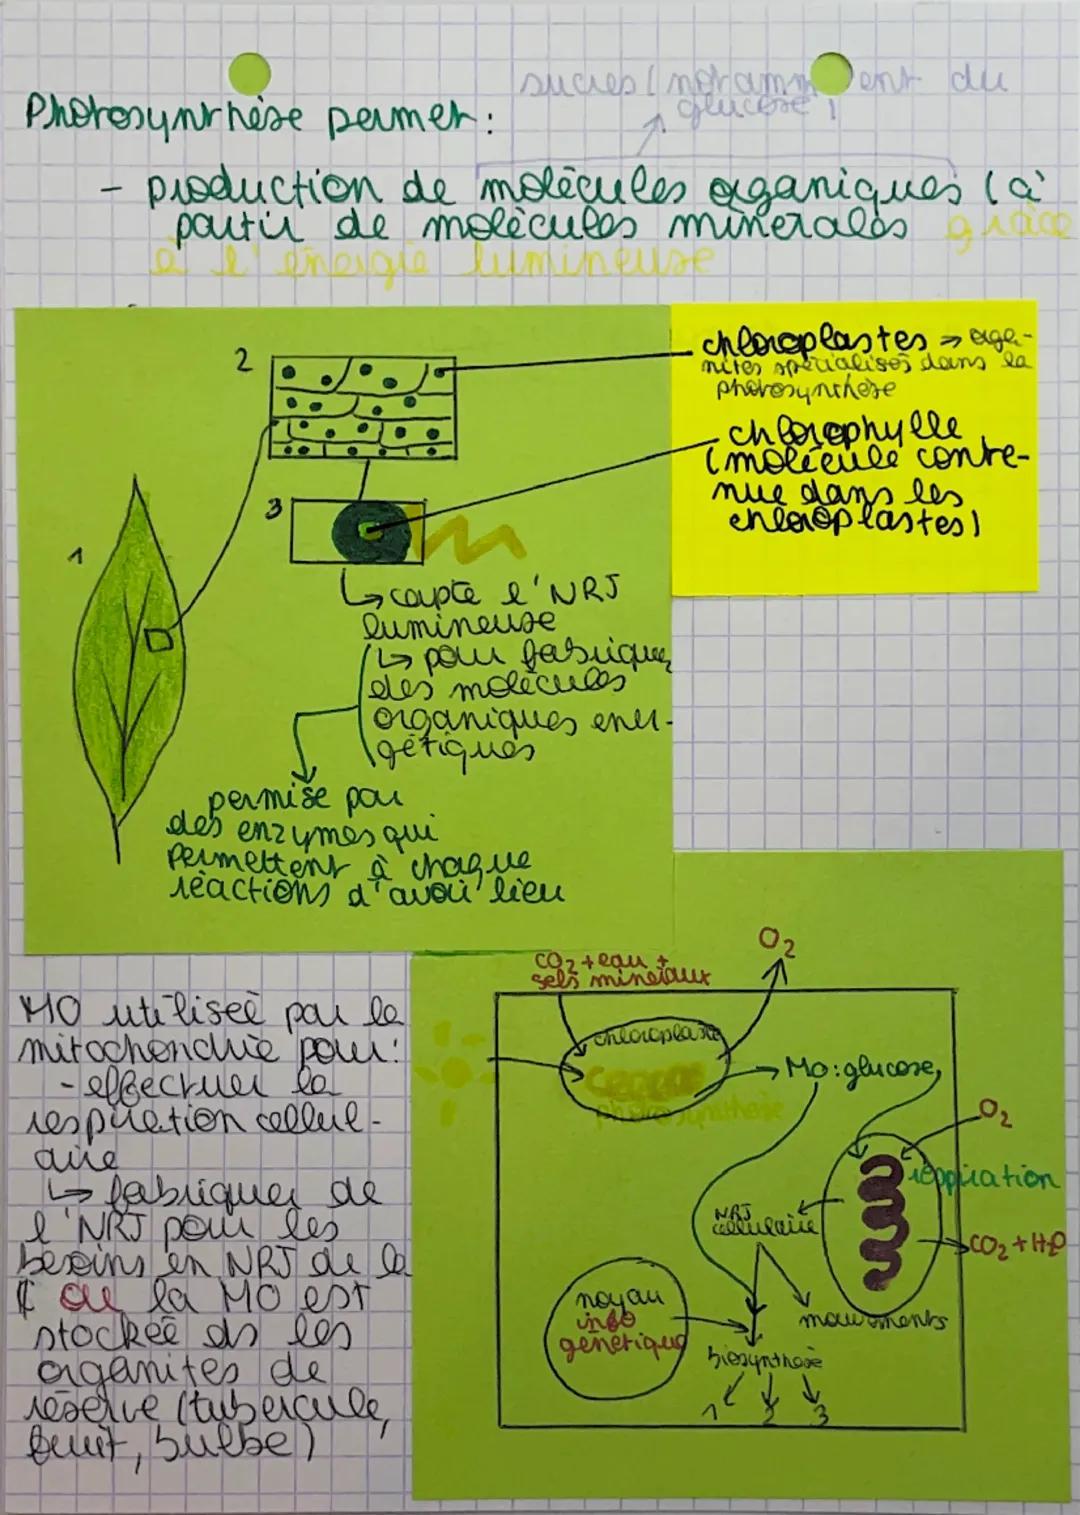 sucres (notamment du
glucose)
Photosynthèse permet :
- production de molécules organiques (à
partir de molécules minérales grâce
à l'énergie lumineuse
2
chloroplastes → orga-
nites spécialisés dans la
photosynthèse
chlorophylle
(molécule conte-
nue dans les
chloroplastes)
3
1
↳ capte l'NRJ
lumineuse
(↳ pour fabriquer
des molécules
organiques éner-
gétiques
permise par
des enzymes qui
permettent à chaque
réactions d'avoir lieu
MO utilisée par la
mitochondrie pour :
- effectuer la
respiration cellul-
aire
↳ fabriquer de
l'NRJ pour les
besoins en NRJ de la
₵ ou la MO est
stockée ds les
organites de
réserve (tubercule,
fruit, bulbe)
CO2 + eau +
sels minéraux
O2
chloroplaste
photosynthèse
MO : glucose
O2
respiration
NRJ
cellulaire
CO2 + H2O
noyau
info
génétique
mouvements
biosynthèse
1 2 3